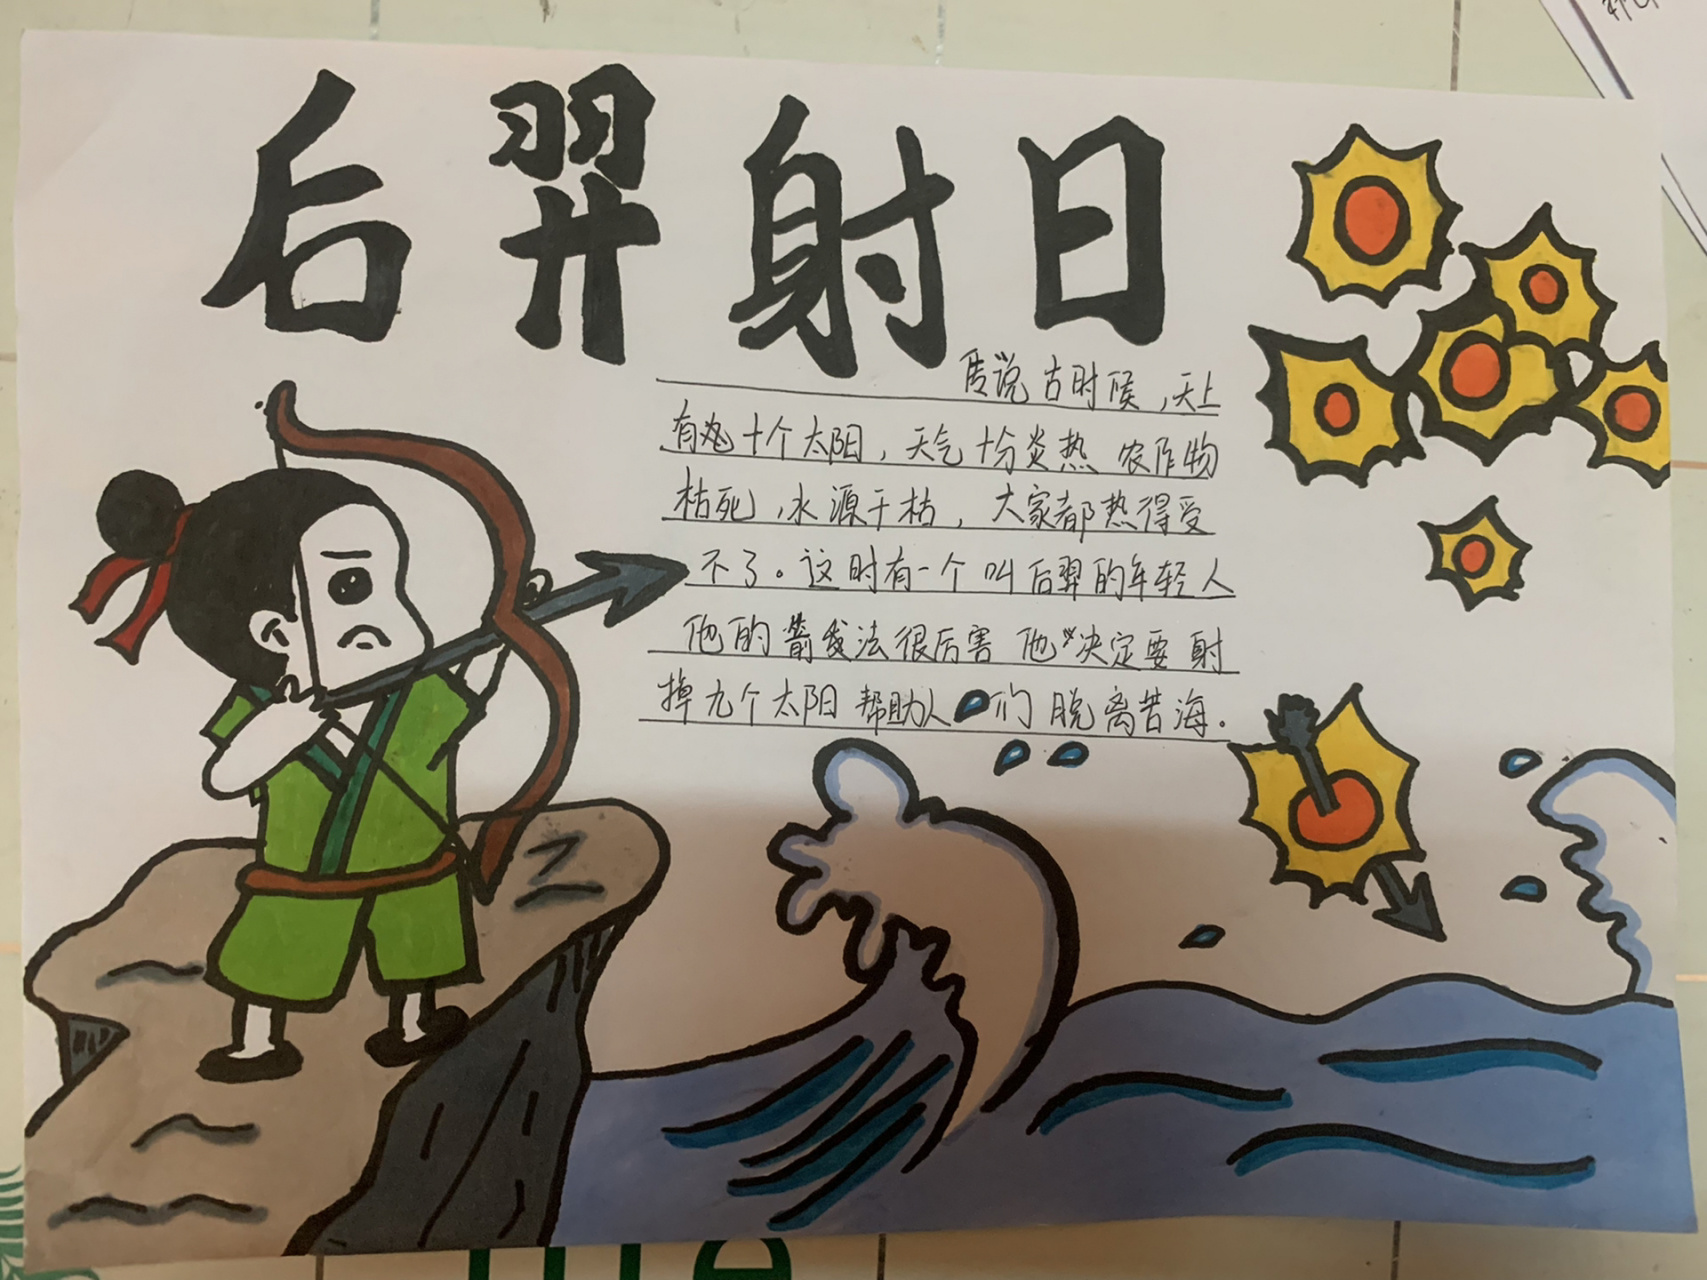 后羿射日
传说古时候,天上
有十个太阳,天气十分炎热 农作物
枯死,水源干枯,大家都热得受
不了。这时有一个叫后羿的年轻人
他的箭法很厉害 他决定要射
掉九个太阳 帮助人们脱离苦海。
me